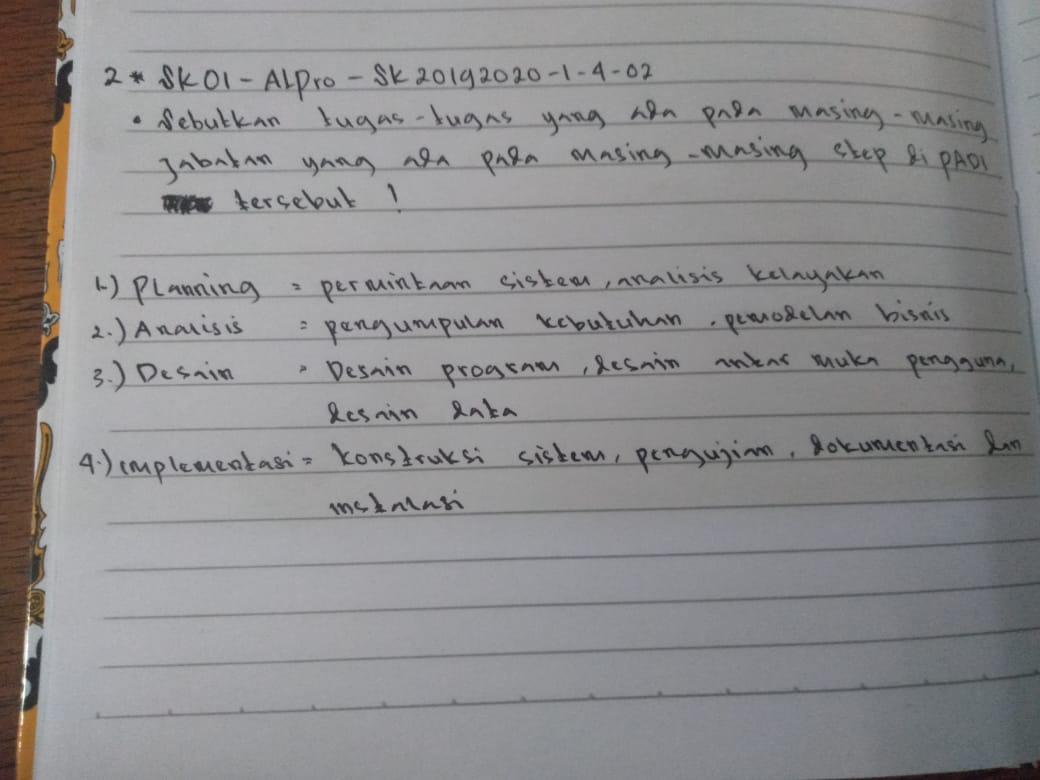 2 * SK01 - ALPro - SK20192020-1-4-02
• Sebutkan tugas-tugas yang ada pada masing-masing
jabatan yang ada pada masing-masing step di PADI
tersebut !
1.) Planning = permintaan sistem, analisis kelayakan
2.) Analisis = pengumpulan kebutuhan, pemodelan bisnis
3.) Desain = Desain program, desain antar muka pengguna,
desain data
4.) implementasi = konstruksi sistem, pengujian, dokumentasi dan
instalasi